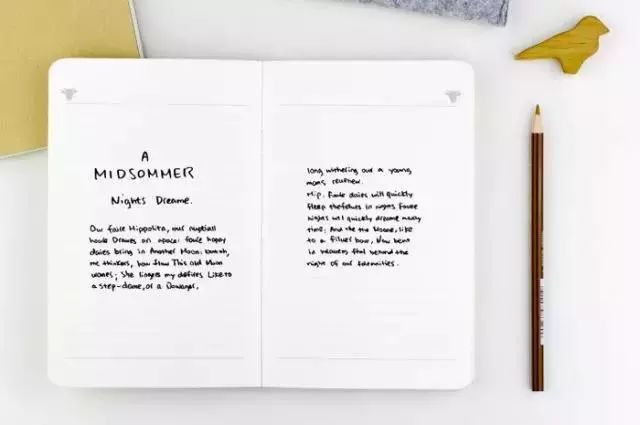 A
MIDSOMMER
Night's Dreame.
Our faire Hippolita, our nuptiall
houre Drawes on apace: foure happy
daies bring in Another Moon: but oh,
me thinkes, how slow This old Moon
wanes; She lingers my desires Like to
a step-dame, or a Dowager,
long withering out a young
mans revenew.
Hip. Foure daies will quickly
steep themselves in nights Foure
nights wil quickly dreame away
time: And the Moone, like
to a silver bow, Now bent
in heaven shal behold the
night of our solemnities.